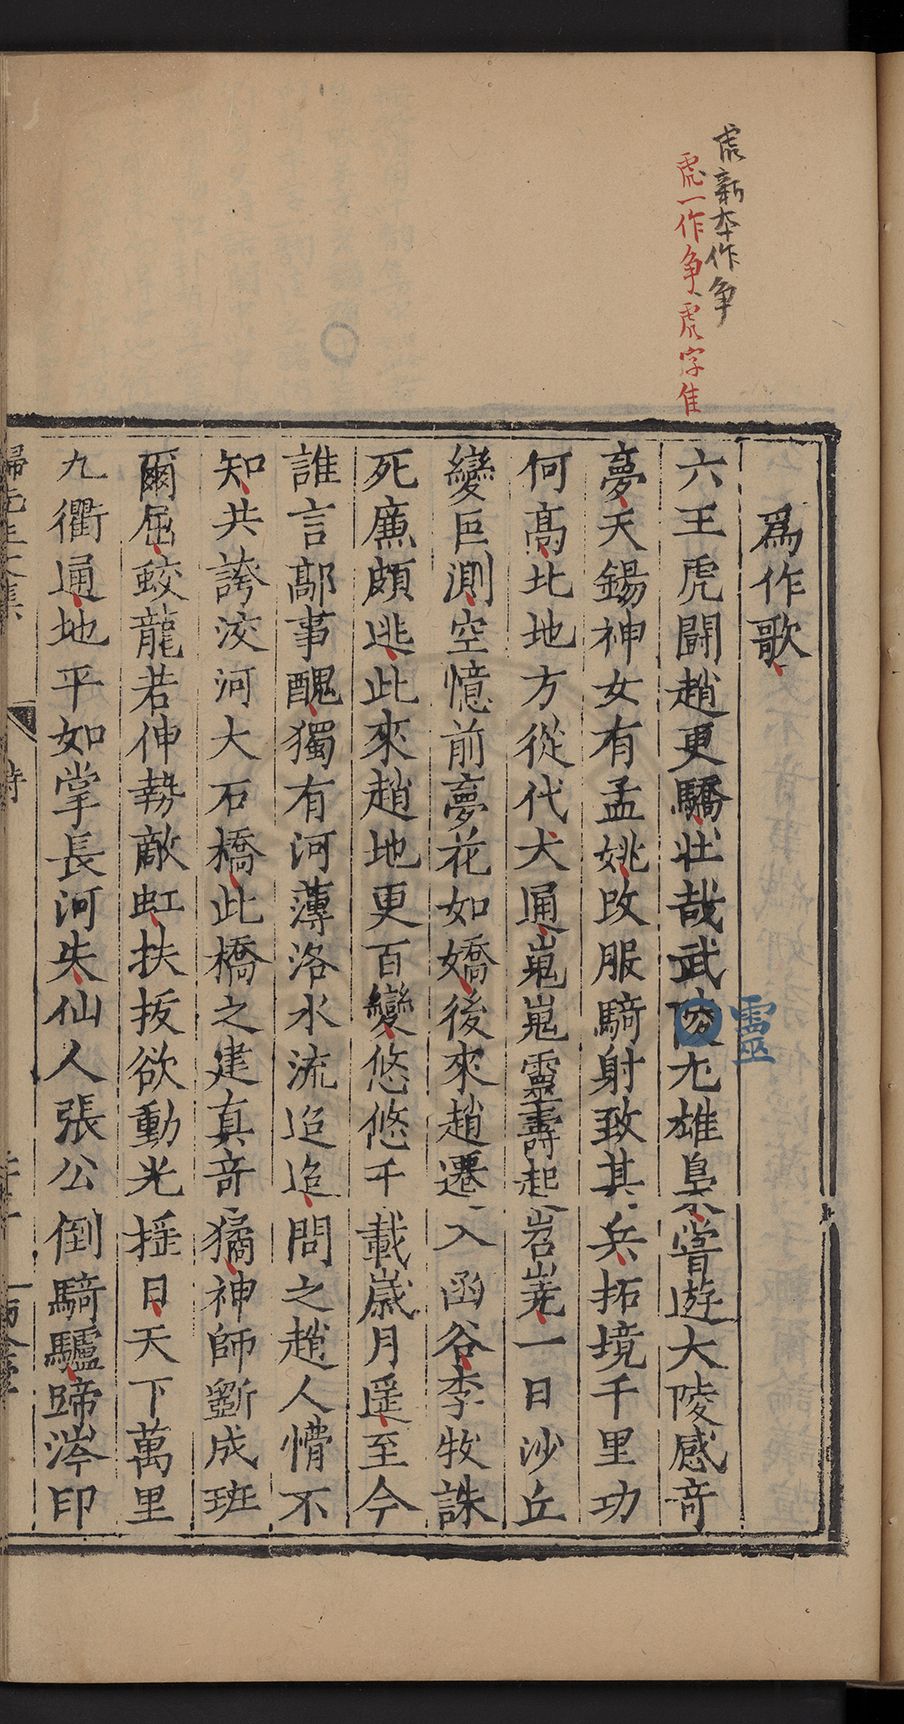 虎新本作争
虎一作争、虎字佳
爲作歌
六王虎鬪趙更驕壯哉武陵尤雄梟嘗遊大陵感竒
靈
夢天錫神女有孟姚改服騎射致其兵拓境千里功
何髙北地方從代犬通嵬嵬靈壽起岧嶤一日沙丘
變叵測空憶前夢花如嬌後來趙遷入函谷李牧誅
死廉頗逃此來趙地更百變悠悠千載歲月遥至今
誰言鄗事醜獨有河薄洛水流迢迢問之趙人懵不
知共誇洨河大石橋此橋之建真竒獝神師斵成班
爾屈蛟龍若伸勢敵虹扶抜欲動光揺日天下萬里
九衢通地平如掌長河失仙人張公倒騎驢蹄涔印